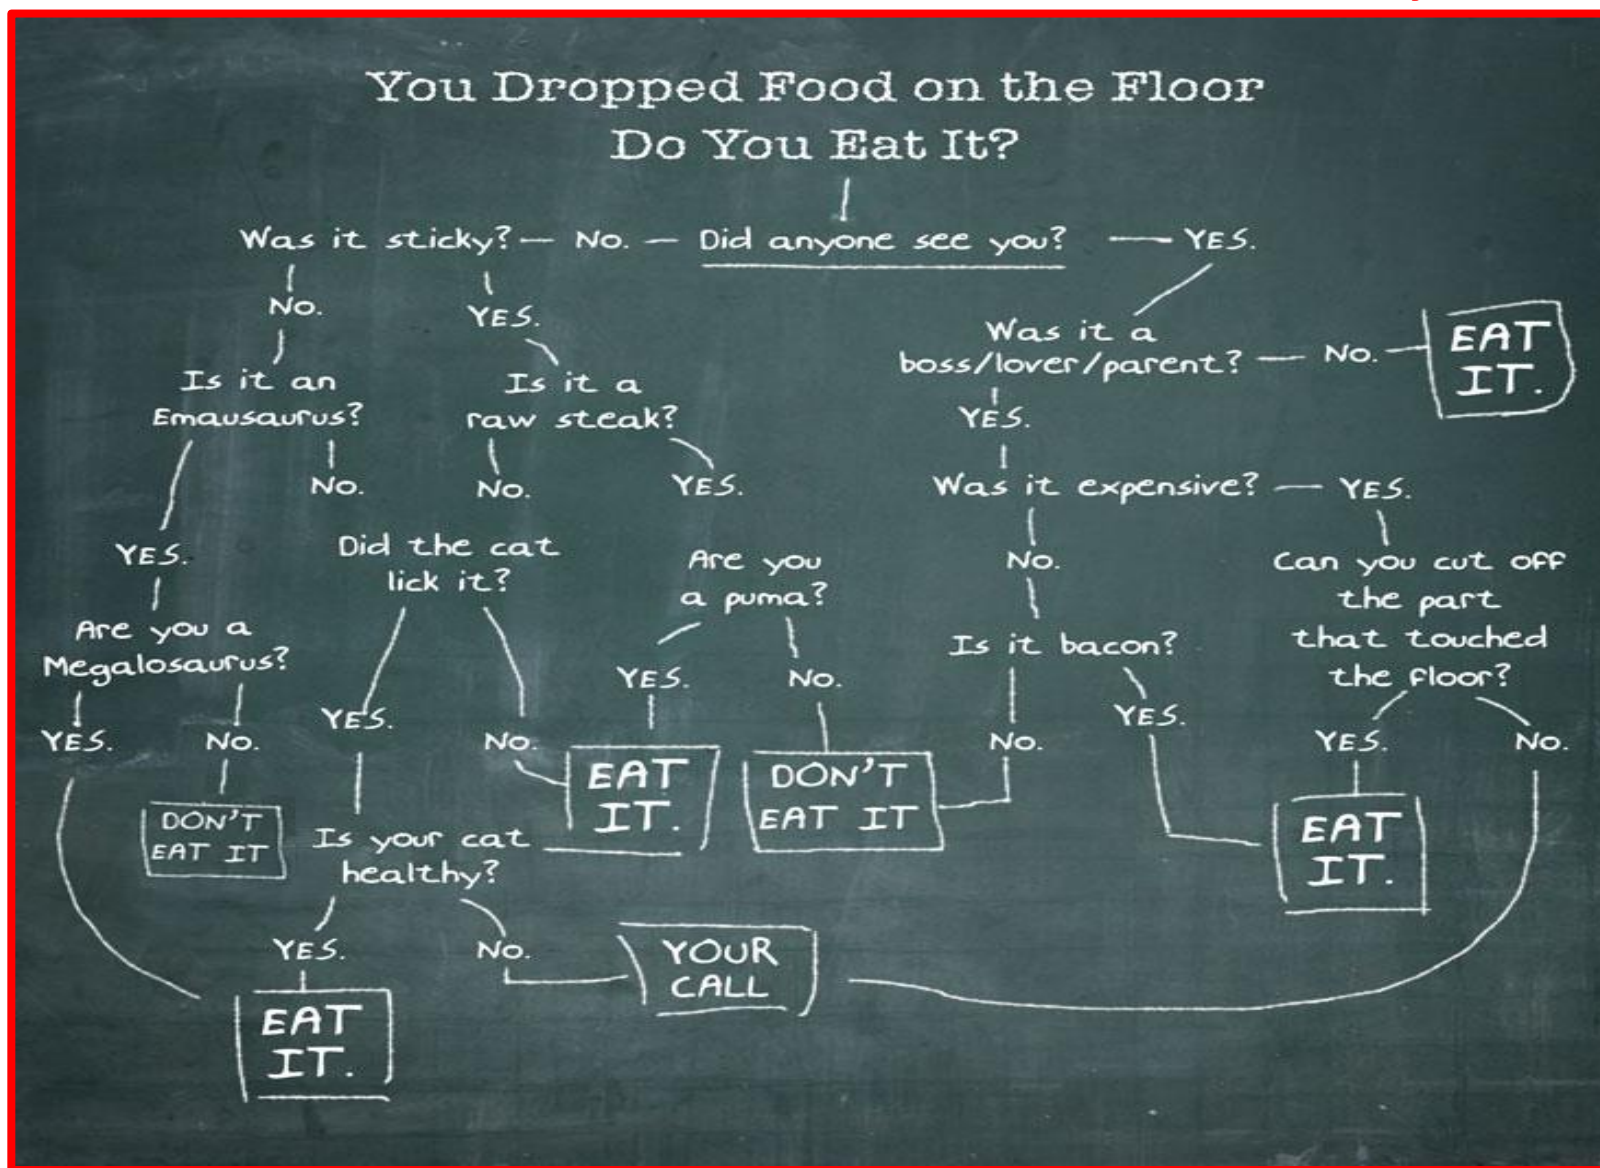 You Dropped Food on the Floor
Do You Eat It?
Was it sticky? No. Did anyone see you? YES.
No.
YES.
Was it a
boss/lover/parent? No.
EAT
IT.
Is it an
Emausaurus?
Is it a
raw steak?
YES.
No.
No.
YES.
Was it expensive? YES.
YES.
Did the cat
lick it?
Are you
a puma?
No.
Can you cut off
the part
that touched
the floor?
Are you a
Megalosaurus?
Is it bacon?
YES.
No.
YES.
No.
YES.
No.
No.
YES.
YES.
No.
DON'T
EAT IT
EAT
IT.
DON'T
EAT IT
EAT
IT.
Is your cat
healthy?
YES.
No.
YOUR
CALL
EAT
IT.